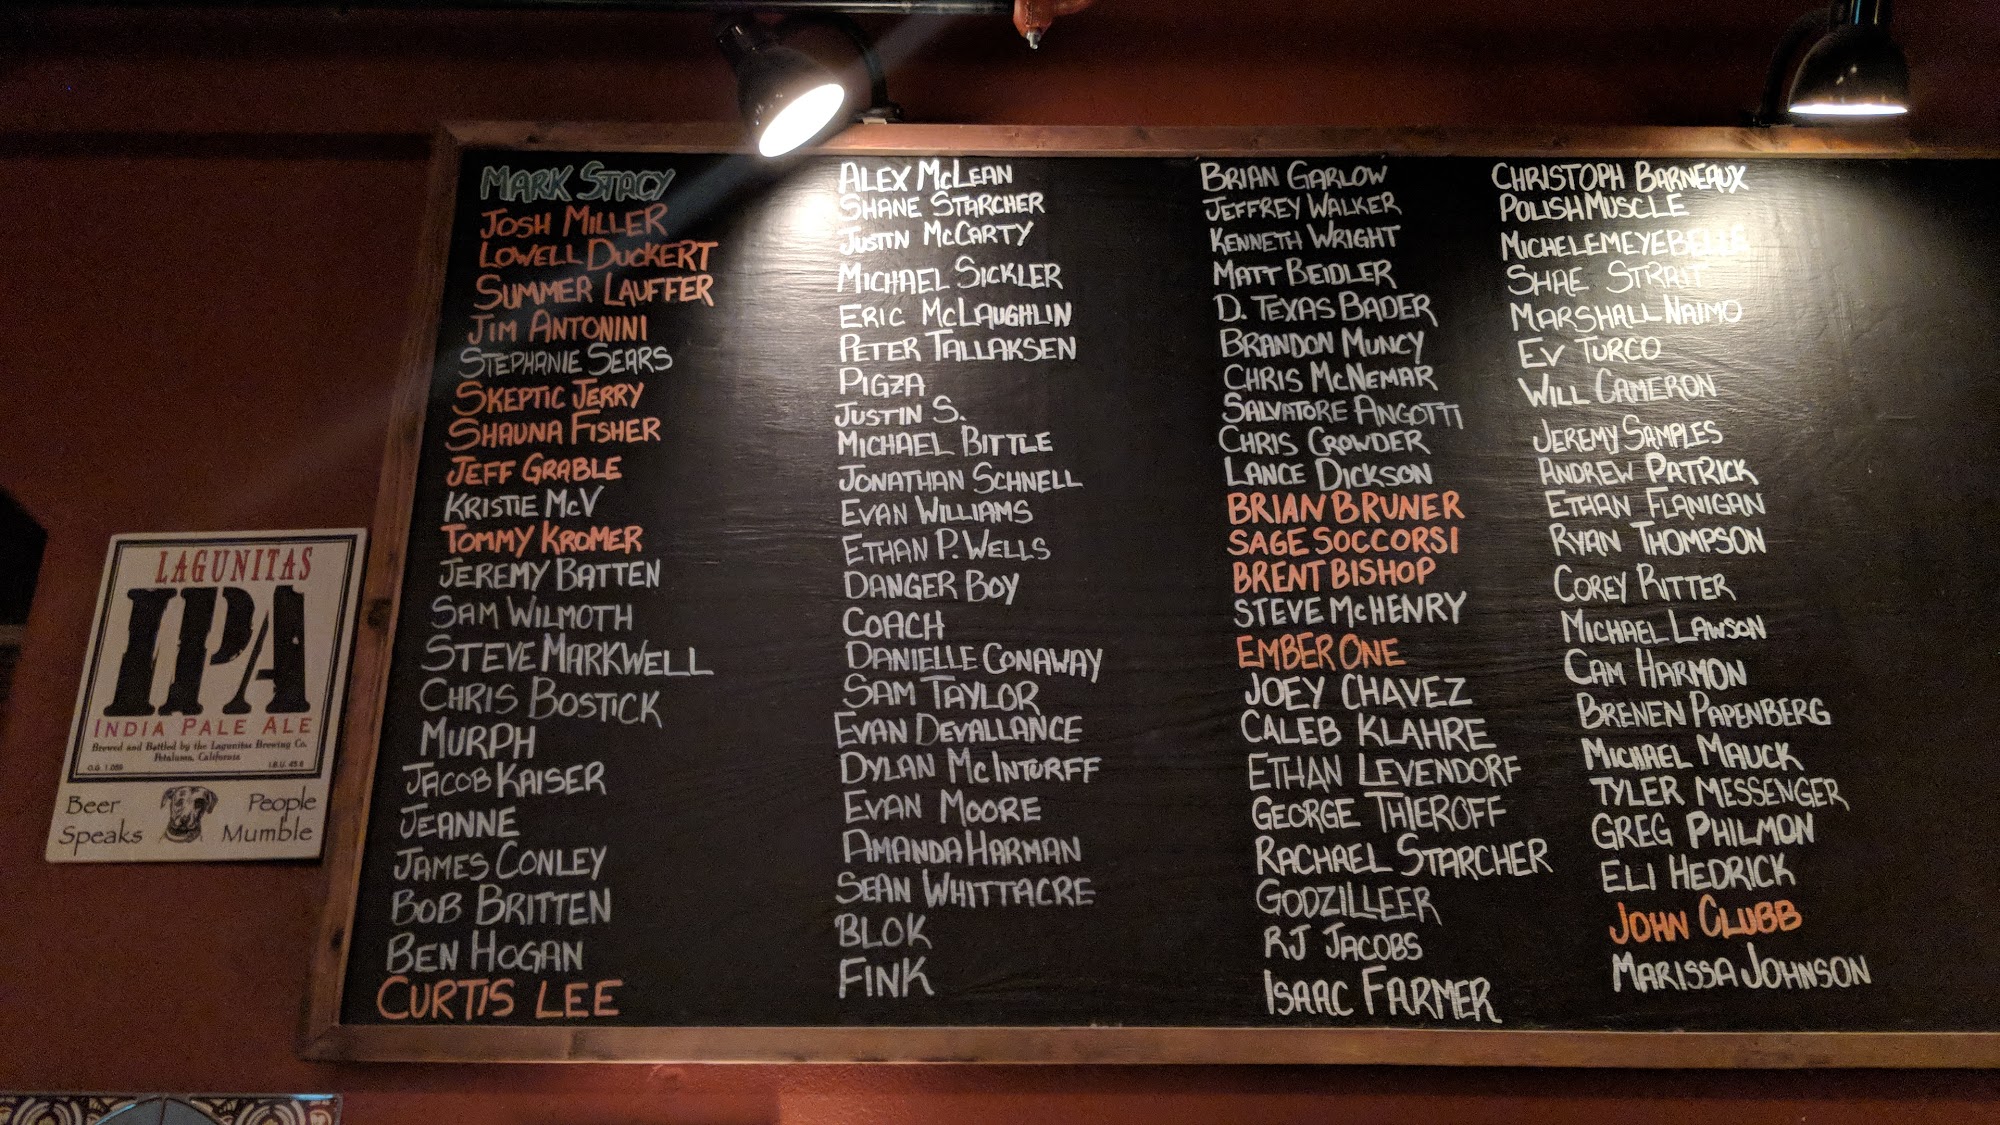 MARK STACY
JOSH MILLER
LOWELL DUCKERT
SUMMER LAUFFER
JIM ANTONINI
STEPHANIE SEARS
SKEPTIC JERRY
SHAUNA FISHER
JEFF GRABLE
KRISTIE McV
TOMMY KROMER
JEREMY BATTEN
SAM WILMOTH
STEVE MARKWELL
CHRIS BOSTICK
MURPH
JACOB KAISER
JEANNE
JAMES CONLEY
BOB BRITTEN
BEN HOGAN
CURTIS LEE
ALEX McLEAN
SHANE STARCHER
JUSTIN McCARTY
MICHAEL SICKLER
ERIC McLAUGHLIN
PETER TALLAKSEN
PIGZA
JUSTIN S.
MICHAEL BITTLE
JONATHAN SCHNELL
EVAN WILLIAMS
ETHAN P. WELLS
DANGER BOY
COACH
DANIELLE CONAWAY
SAM TAYLOR
EVAN DEVALLANCE
DYLAN McINTURFF
EVAN MOORE
AMANDA HARMAN
SEAN WHITTACRE
BLOK
FINK
BRIAN GARLOW
JEFFREY WALKER
KENNETH WRIGHT
MATT BEIDLER
D. TEXAS BADER
BRANDON MUNCY
CHRIS McNEMAR
SALVATORE ANGOTTI
CHRIS CROWDER
LANCE DICKSON
BRIAN BRUNER
SAGE SOCCORSI
BRENT BISHOP
STEVE McHENRY
EMBER ONE
JOEY CHAVEZ
CALEB KLAHRE
ETHAN LEVENDORF
GEORGE THIEROFF
RACHAEL STARCHER
GODZILLEER
RJ JACOBS
ISAAC FARMER
CHRISTOPH BARNEAUX
POLISHMUSCLE
MICHELEMEYEBELLE
SHAE STRAIT
MARSHALL NAIMO
EV TURCO
WILL CAMERON
JEREMY SAMPLES
ANDREW PATRICK
ETHAN FLANIGAN
RYAN THOMPSON
COREY RITTER
MICHAEL LAWSON
CAM HARMON
BRENEN PAPENBERG
MICHAEL MAUCK
TYLER MESSENGER
GREG PHILMON
ELI HEDRICK
JOHN CLUBB
MARISSA JOHNSON
LAGUNITAS
IPA
INDIA PALE ALE
Brewed and Bottled by the Lagunitas Brewing Co.
Petaluma, California
O.G. 1.059 I.B.U. 45.6
Beer People
Speaks Mumble